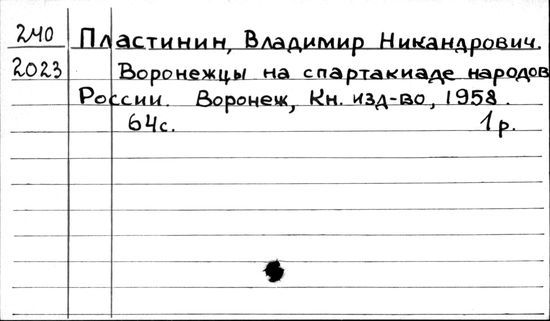 240 Пластинин, Владимир Никандрович.
2023 Воронежцы на спартакиаде народов
России. Воронеж, Кн. изд-во, 1958.
64с. 1р.